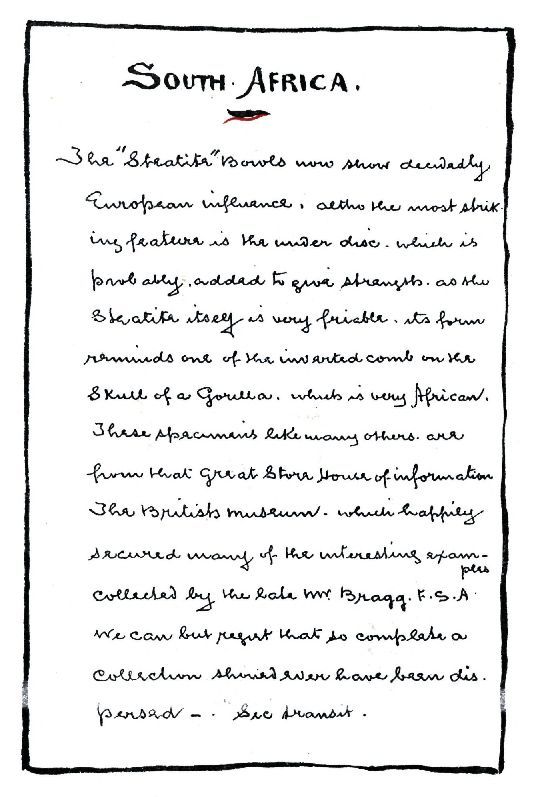 SOUTH. AFRICA.
The "Steatite" Bowls now show decidedly
European influence, altho the most strik-
ing feature is the under disc. which is
probably, added to give strength. as the
Steatite itself is very friable. its form
reminds one of the inverted comb on the
Skull of a Gorilla. which is very African.
These specimens like many others. are
from that Great Store House of information
The British Museum. which happily
secured many of the interesting exam-
ples
collected by the late Mr. Bragg. F.S.A.
We can but regret that so complete a
collection should ever have been dis.
persed -. Sic transit.